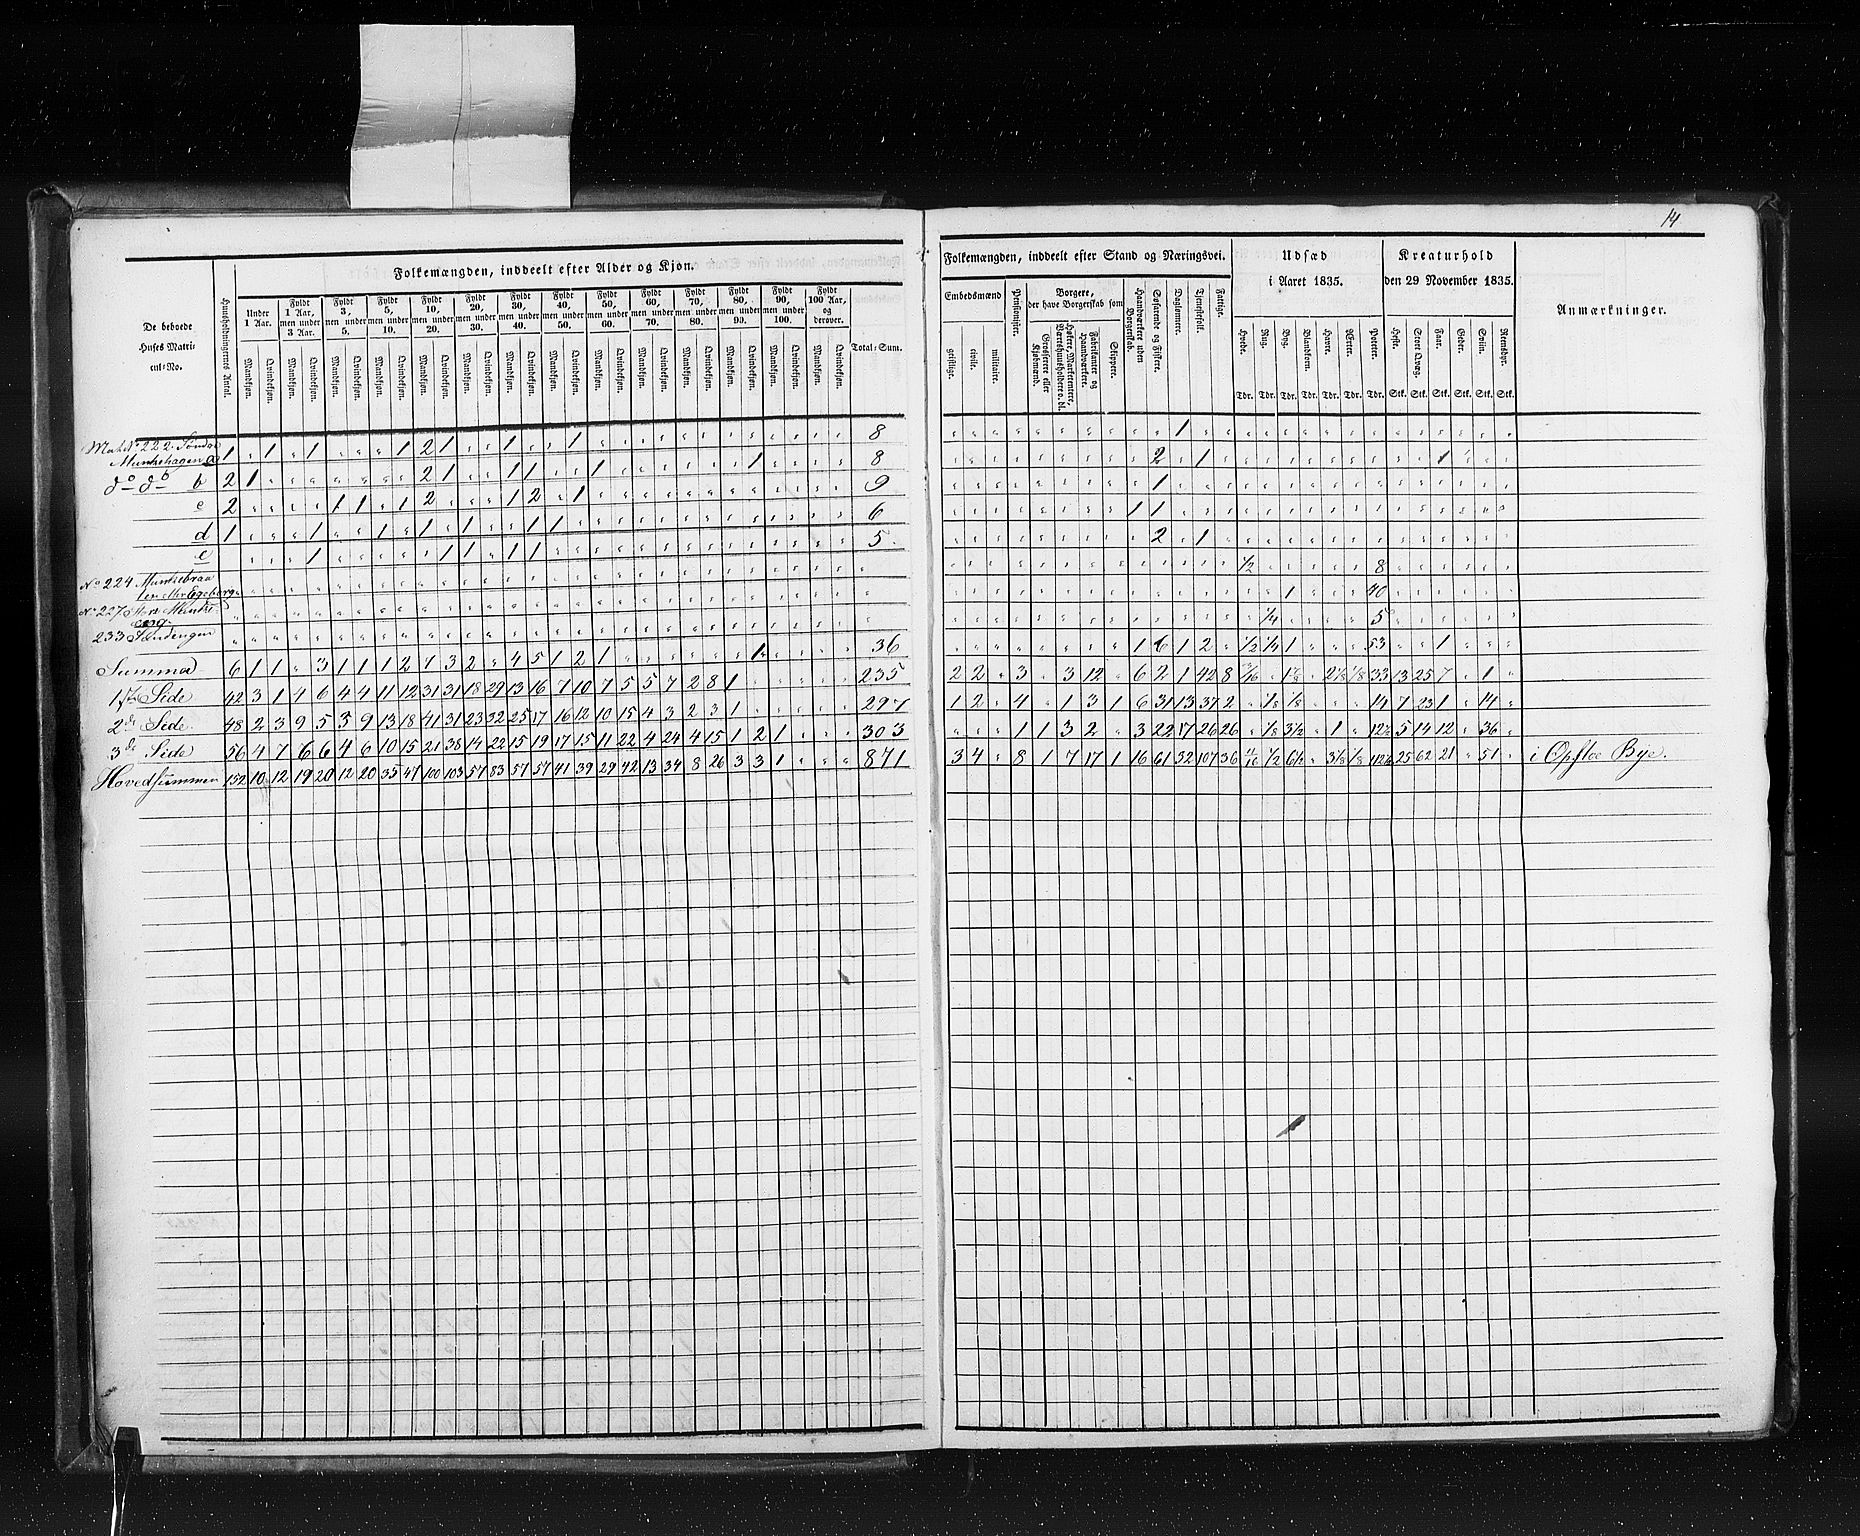 14
Folkemængden, inddeelt efter Alder og Kjøn.
De beboede
Huses Matri-
cul=No.
Huusholdningernes Antal.
Under
1 Aar.
Fyldt
1 Aar,
men under
3 Aar.
Fyldt
3,
men under
5.
Fyldt
5,
men under
10.
Fyldt
10,
men under
20.
Fyldt
20,
men under
30.
Fyldt
30,
men under
40.
Fyldt
40,
men under
50.
Fyldt
50,
men under
60.
Fyldt
60,
men under
70.
Fyldt
70,
men under
80.
Fyldt
80,
men under
90.
Fyldt
90,
men under
100.
Fyldt
100 Aar,
og
derover.
Mandkjøn. Qvindekjøn. Mandkjøn. Qvindekjøn. Mandkjøn. Qvindekjøn. Mandkjøn. Qvindekjøn. Mandkjøn. Qvindekjøn. Mandkjøn. Qvindekjøn. Mandkjøn. Qvindekjøn. Mandkjøn. Qvindekjøn. Mandkjøn. Qvindekjøn. Mandkjøn. Qvindekjøn. Mandkjøn. Qvindekjøn. Mandkjøn. Qvindekjøn. Mandkjøn. Qvindekjøn. Mandkjøn. Qvindekjøn.
Total=Sum.
222
Munkehagen a 1 " 1 " 1 " " " 1 2 1 " " 1 " " 1 " " " " " " " " " " " " 8
do do b 2 1 " " " " " " " 2 1 " " 1 1 " " 1 " " " " " " 1 " " " " 8
c 2 " " " " 1 1 " 1 2 " " " 1 2 " 1 " " " " " " " " " " " " 9
d 1 " " " 1 " " 1 " 1 " 1 " " 1 1 " " " " " " " " " " " " " 6
e " " " 1 " " " " " 1 1 " 1 1 " " " " " " " " " " " " " " 5
No 224
No 227
eng.
233
Summa 6 1 1 " 3 1 1 1 2 7 3 2 " 4 5 1 2 1 " " " " " " 1 " " " " 36
1ste Side 42 3 1 4 6 4 4 11 12 31 31 18 29 13 16 7 10 7 5 5 7 2 8 1 " " " " " 235
2de Side 48 2 3 9 5 3 9 13 18 41 31 23 32 25 17 16 12 10 15 4 3 2 3 1 " " " " " 297
3de Side 56 4 7 6 6 4 6 10 15 21 38 14 22 15 19 17 15 11 22 4 24 4 15 1 2 1 " " " 303
Hovedsummen 152 10 12 19 20 12 20 35 47 100 103 57 83 57 57 41 39 29 42 13 34 8 26 3 3 1 " " " 871
Folkemængden, inddeelt efter Stand og Næringsvei.
Embedsmænd
geistlige.
civile.
militaire.
Pensionister.
Borgere,
der have Borgerskab som
Grosserere eller
Kjøbmænd.
Høkere, Markentenere,
Værtshuusholdere o. dl.
Fabrikanter og
Haandværkere.
Skippere.
Haandværkere uden
Borgerskab.
Søfarende og Fiskere.
Daglønnere.
Tjenestefolk.
Fattige.
Udsæd
i Aaret 1835.
Hvede.
Rug.
Byg.
Blandkorn.
Havre.
Erter.
Poteter.
Tdr. Tdr. Tdr. Tdr. Tdr. Tdr. Tdr.
Kreaturhold
den 29 November 1835.
Heste.
Stort Qvæg.
Faar.
Geder.
Sviin.
Rensdyr.
Stk. Stk. Stk. Stk. Stk. Stk.
Anmærkninger.
1
2 " 1 1
1
1 1
2 " 1
1/2 8
1 40
1/4 5
1 6 1 2 " 1/2 1/4 1 " " " 53 " " 1
2 2 " 3 " 3 12 " 6 2 1 42 8 33 13 25 7 " 1 "
1 2 " 4 " 1 3 1 6 31 13 37 2 " 1/8 1/8 " " " 14 7 23 1 " 14 "
" " " 1 1 3 2 " 3 22 17 26 26 " 1/8 3 1/2 " 1 " 12 1/2 5 14 12 " 36 "
3 4 " 8 1 7 17 1 16 61 32 107 36 1/2 6 1/2 " 3 1/8 1/8 112 1/2 25 62 21 " 51 " i Opsloe Bye.